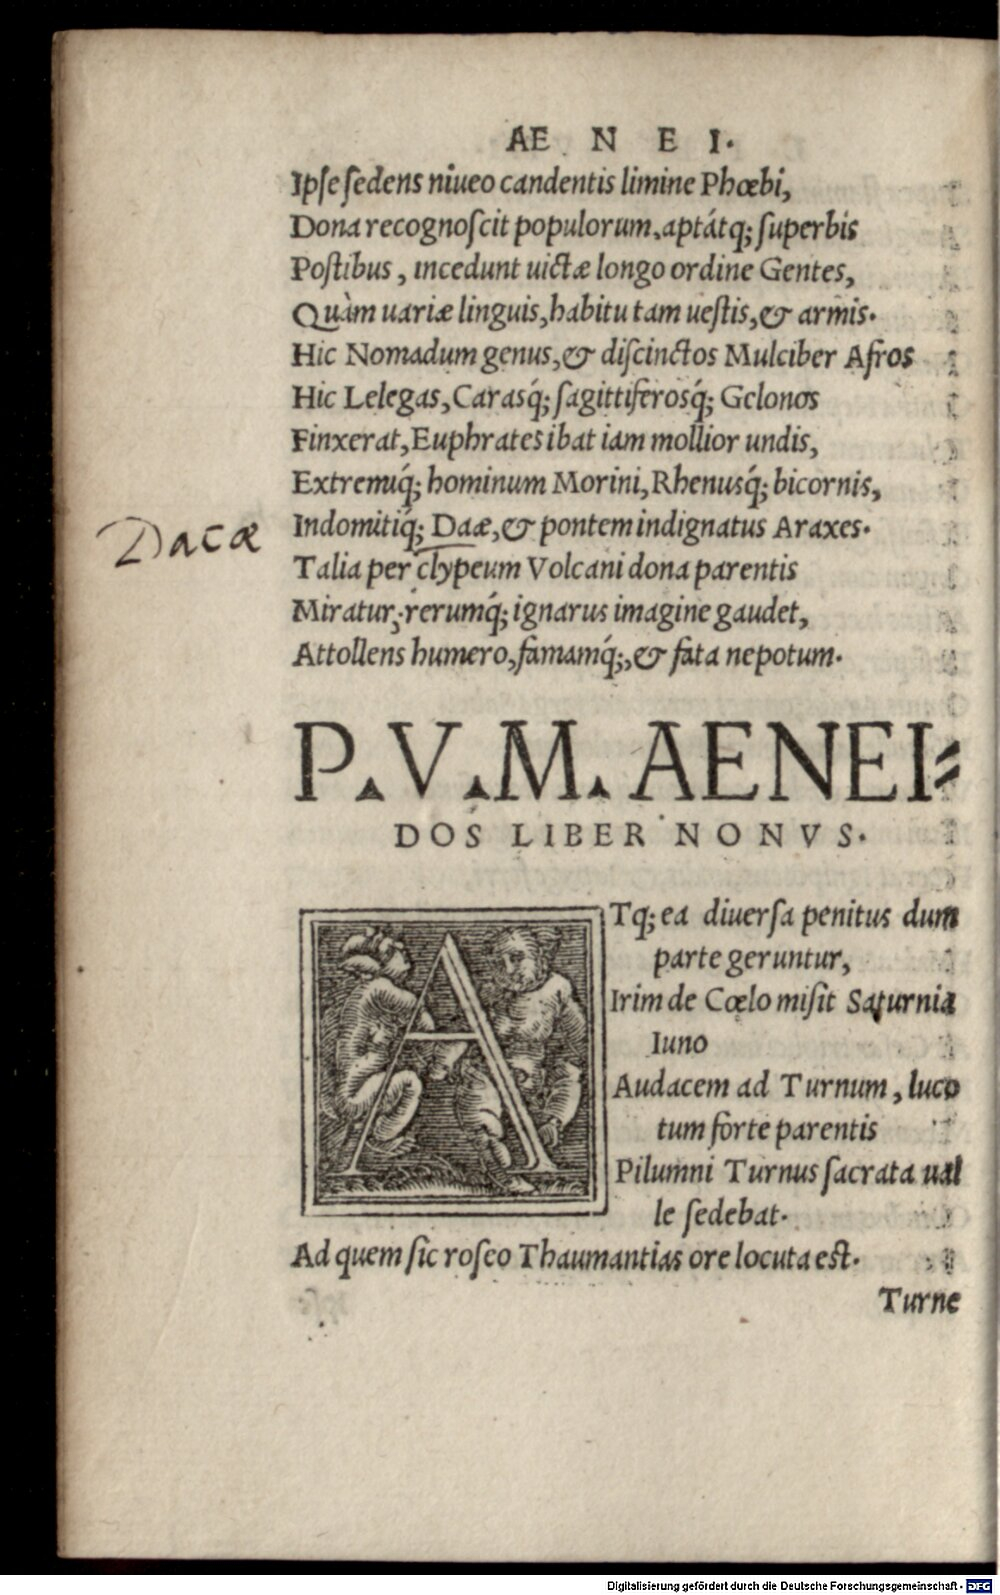 AE N E I.
Ipſe ſedens niueo candentis limine Phœbi,
Dona recognoſcit populorum, aptátq; ſuperbis
Poſtibus, incedunt uictæ longo ordine Gentes,
Quàm uariæ linguis, habitu tam ueſtis, & armis.
Hic Nomadum genus, & diſcinctos Mulciber Afros
Hic Lelegas, Carasq́; ſagittiferosq́; Gelonos
Finxerat, Euphrates ibat iam mollior undis,
Extremiq́; hominum Morini, Rhenusq́; bicornis,
Indomitiq́; Daæ, & pontem indignatus Araxes.
Dacæ
Talia per clypeum Volcani dona parentis
Miratur, rerumq́; ignarus imagine gaudet,
Attollens humero, famamq́;, & fata nepotum.
P. V. M. AENEI=
DOS LIBER NONVS.
ATq; ea diuerſa penitus dum
parte geruntur,
Irim de Cœlo miſit Saturnia
Iuno
Audacem ad Turnum, luco
tum forte parentis
Pilumni Turnus ſacrata ual
le ſedebat.
Ad quem ſic roſeo Thaumantias ore locuta eſt.
Turne
Digitalisierung gefördert durch die Deutsche Forschungsgemeinschaft - DFG